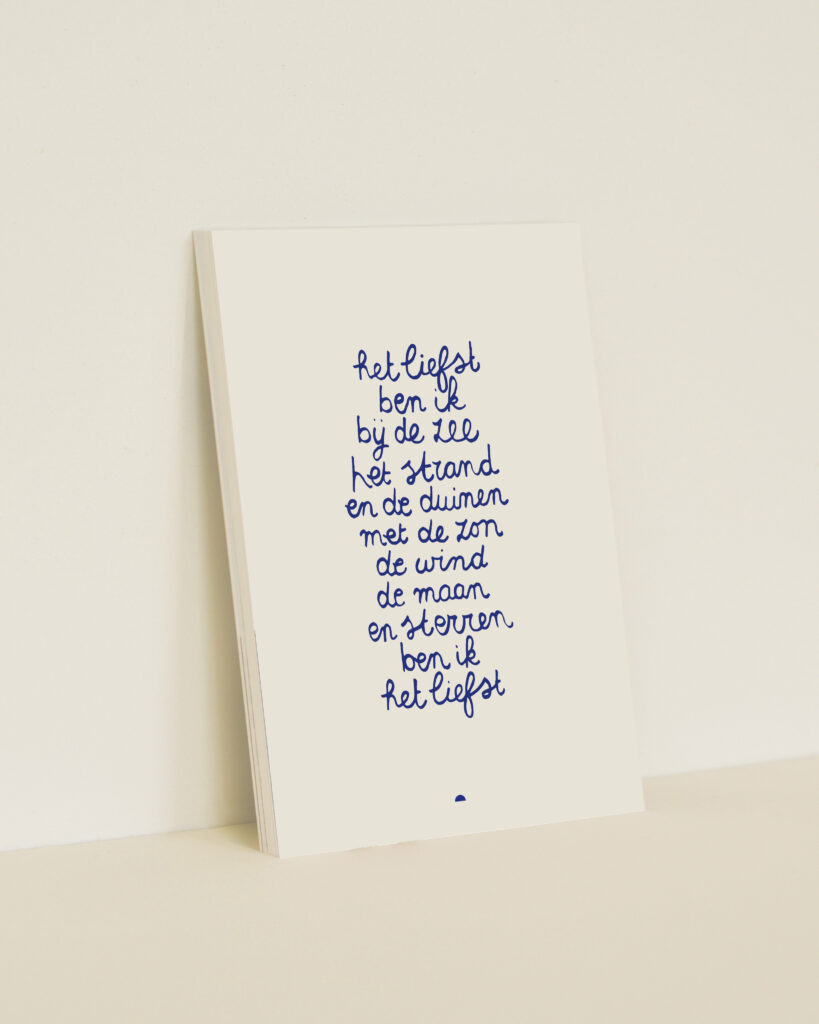 het liefst
ben ik
bij de zee
het strand
en de duinen
met de zon
de wind
de maan
en sterren
ben ik
het liefst